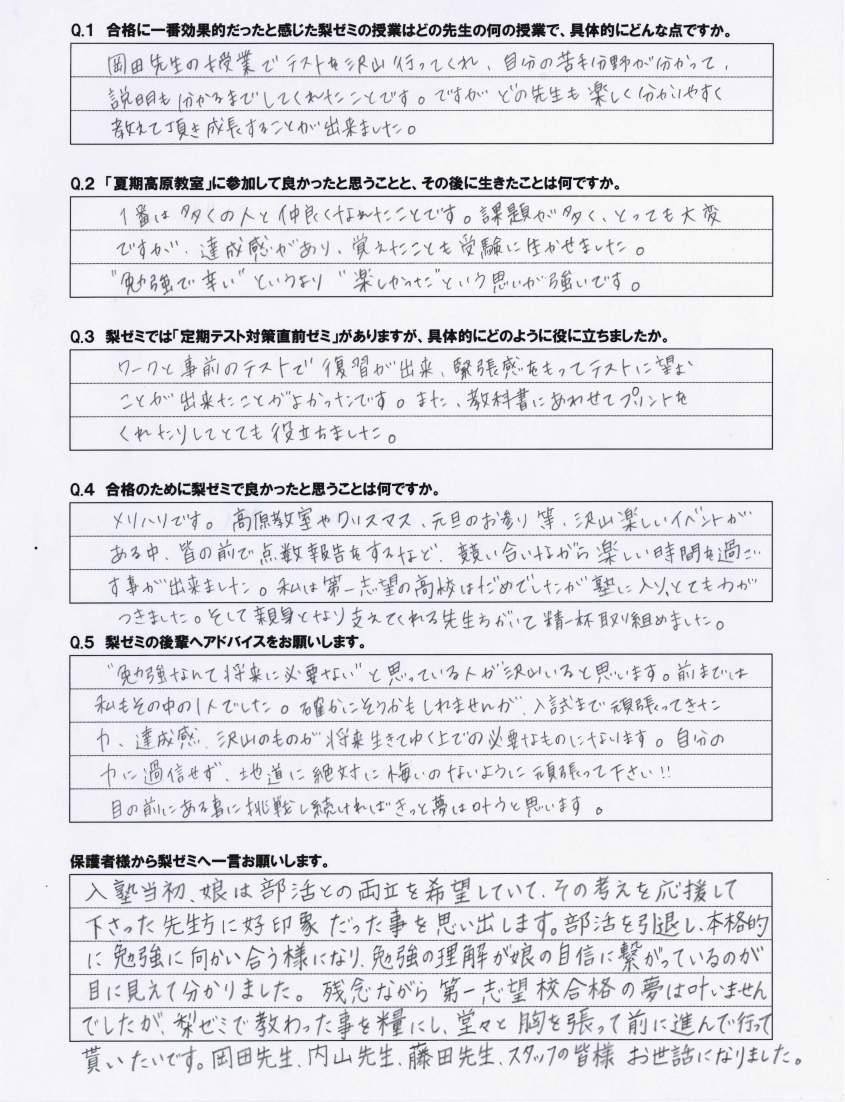 Q.1 合格に一番効果的だったと感じた梨ゼミの授業はどの先生の何の授業で、具体的にどんな点ですか。
岡田先生の授業でテストを沢山行ってくれ、自分の苦手分野が分かって、
説明も分かるまでしてくれたことです。ですがどの先生も楽しく分かりやすく
教えて頂き成長することが出来ました。
Q.2 「夏期高原教室」に参加して良かったと思うことと、その後に生きたことは何ですか。
1番は多くの人と仲良くなれたことです。課題が多く、とっても大変
ですが、達成感があり、覚えたことも受験に生かせました。
"勉強で辛い"というより"楽しかった"という思いが強いです。
Q.3 梨ゼミでは「定期テスト対策直前ゼミ」がありますが、具体的にどのように役に立ちましたか。
ワークと事前のテストで復習が出来、緊張感をもってテストに望む
ことが出来たことがよかったです。また、教科書にあわせてプリントを
くれたりしてとても役立ちました。
Q.4 合格のために梨ゼミで良かったと思うことは何ですか。
メリハリです。高原教室やクリスマス、元旦のお参り等、沢山楽しいイベントが
ある中、皆の前で点数報告をするなど、競い合いながら楽しい時間を過ご
す事が出来ました。私は第一志望の高校はだめでしたが塾に入り、とても力が
つきました。そして親身となり支えてくれる先生方がいて精一杯取り組めました。
Q.5 梨ゼミの後輩へアドバイスをお願いします。
"勉強なんて将来に必要ない"と思っている人が沢山いると思います。前までは
私もその中の1人でした。確かにそうかもしれませんが、入試まで頑張ってきた
力、達成感、沢山のものが将来生きてゆく上での必要なものになります。自分の
力に過信せず、地道に絶対に悔いのないように頑張って下さい!!
目の前にある事に挑戦し続ければきっと夢は叶うと思います。
保護者様から梨ゼミへ一言お願いします。
入塾当初、娘は部活との両立を希望していて、その考えを応援して
下さった先生方に好印象だった事を思い出します。部活を引退し、本格的
に勉強に向かい合う様になり、勉強の理解が娘の自信に繋がっているのが
目に見えて分かりました。残念ながら第一志望校合格の夢は叶いません
でしたが、梨ゼミで教わった事を糧にし、堂々と胸を張って前に進んで行って
貰いたいです。岡田先生、内山先生、藤田先生、スタッフの皆様 お世話になりました。